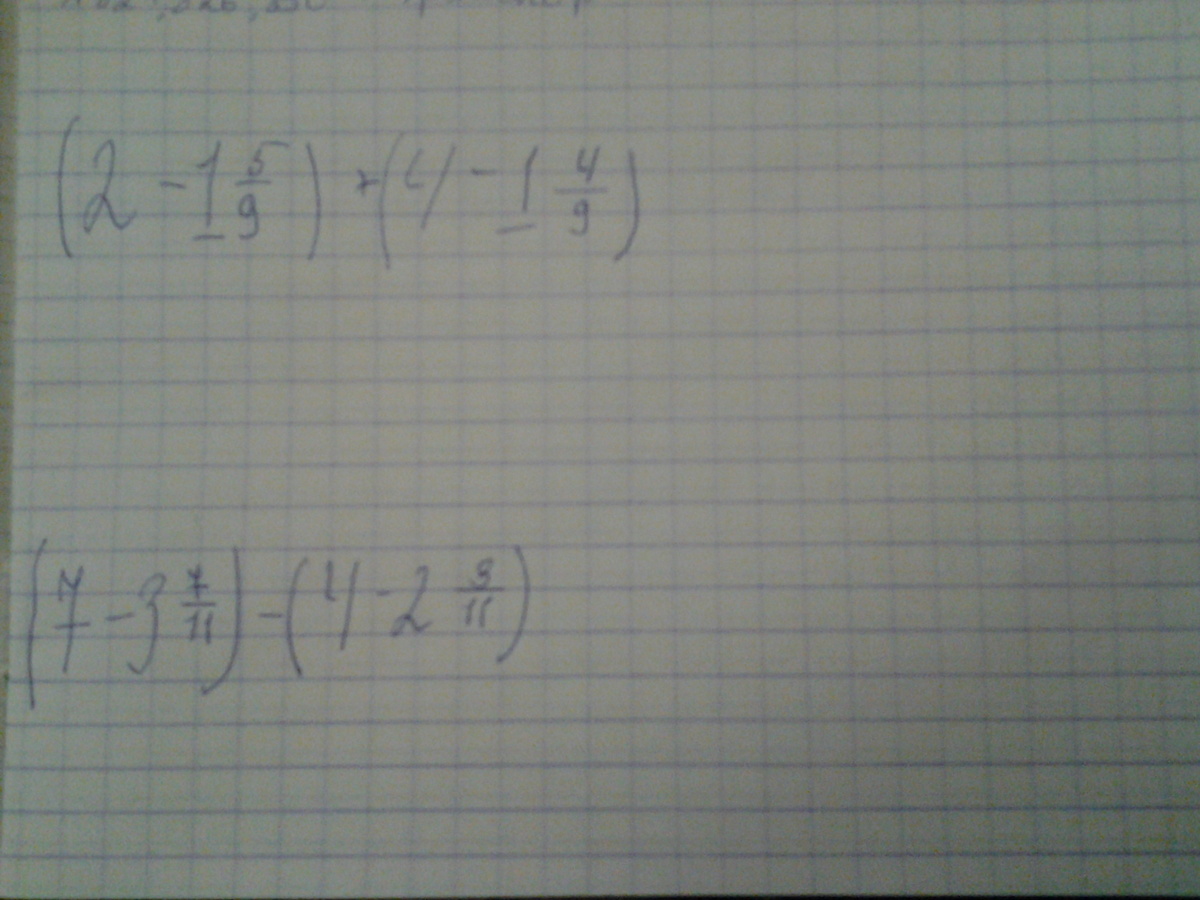 (2 - 1 5/9) + (4 - 1 4/9)
(7 - 3 7/11) - (4 - 2 9/11)